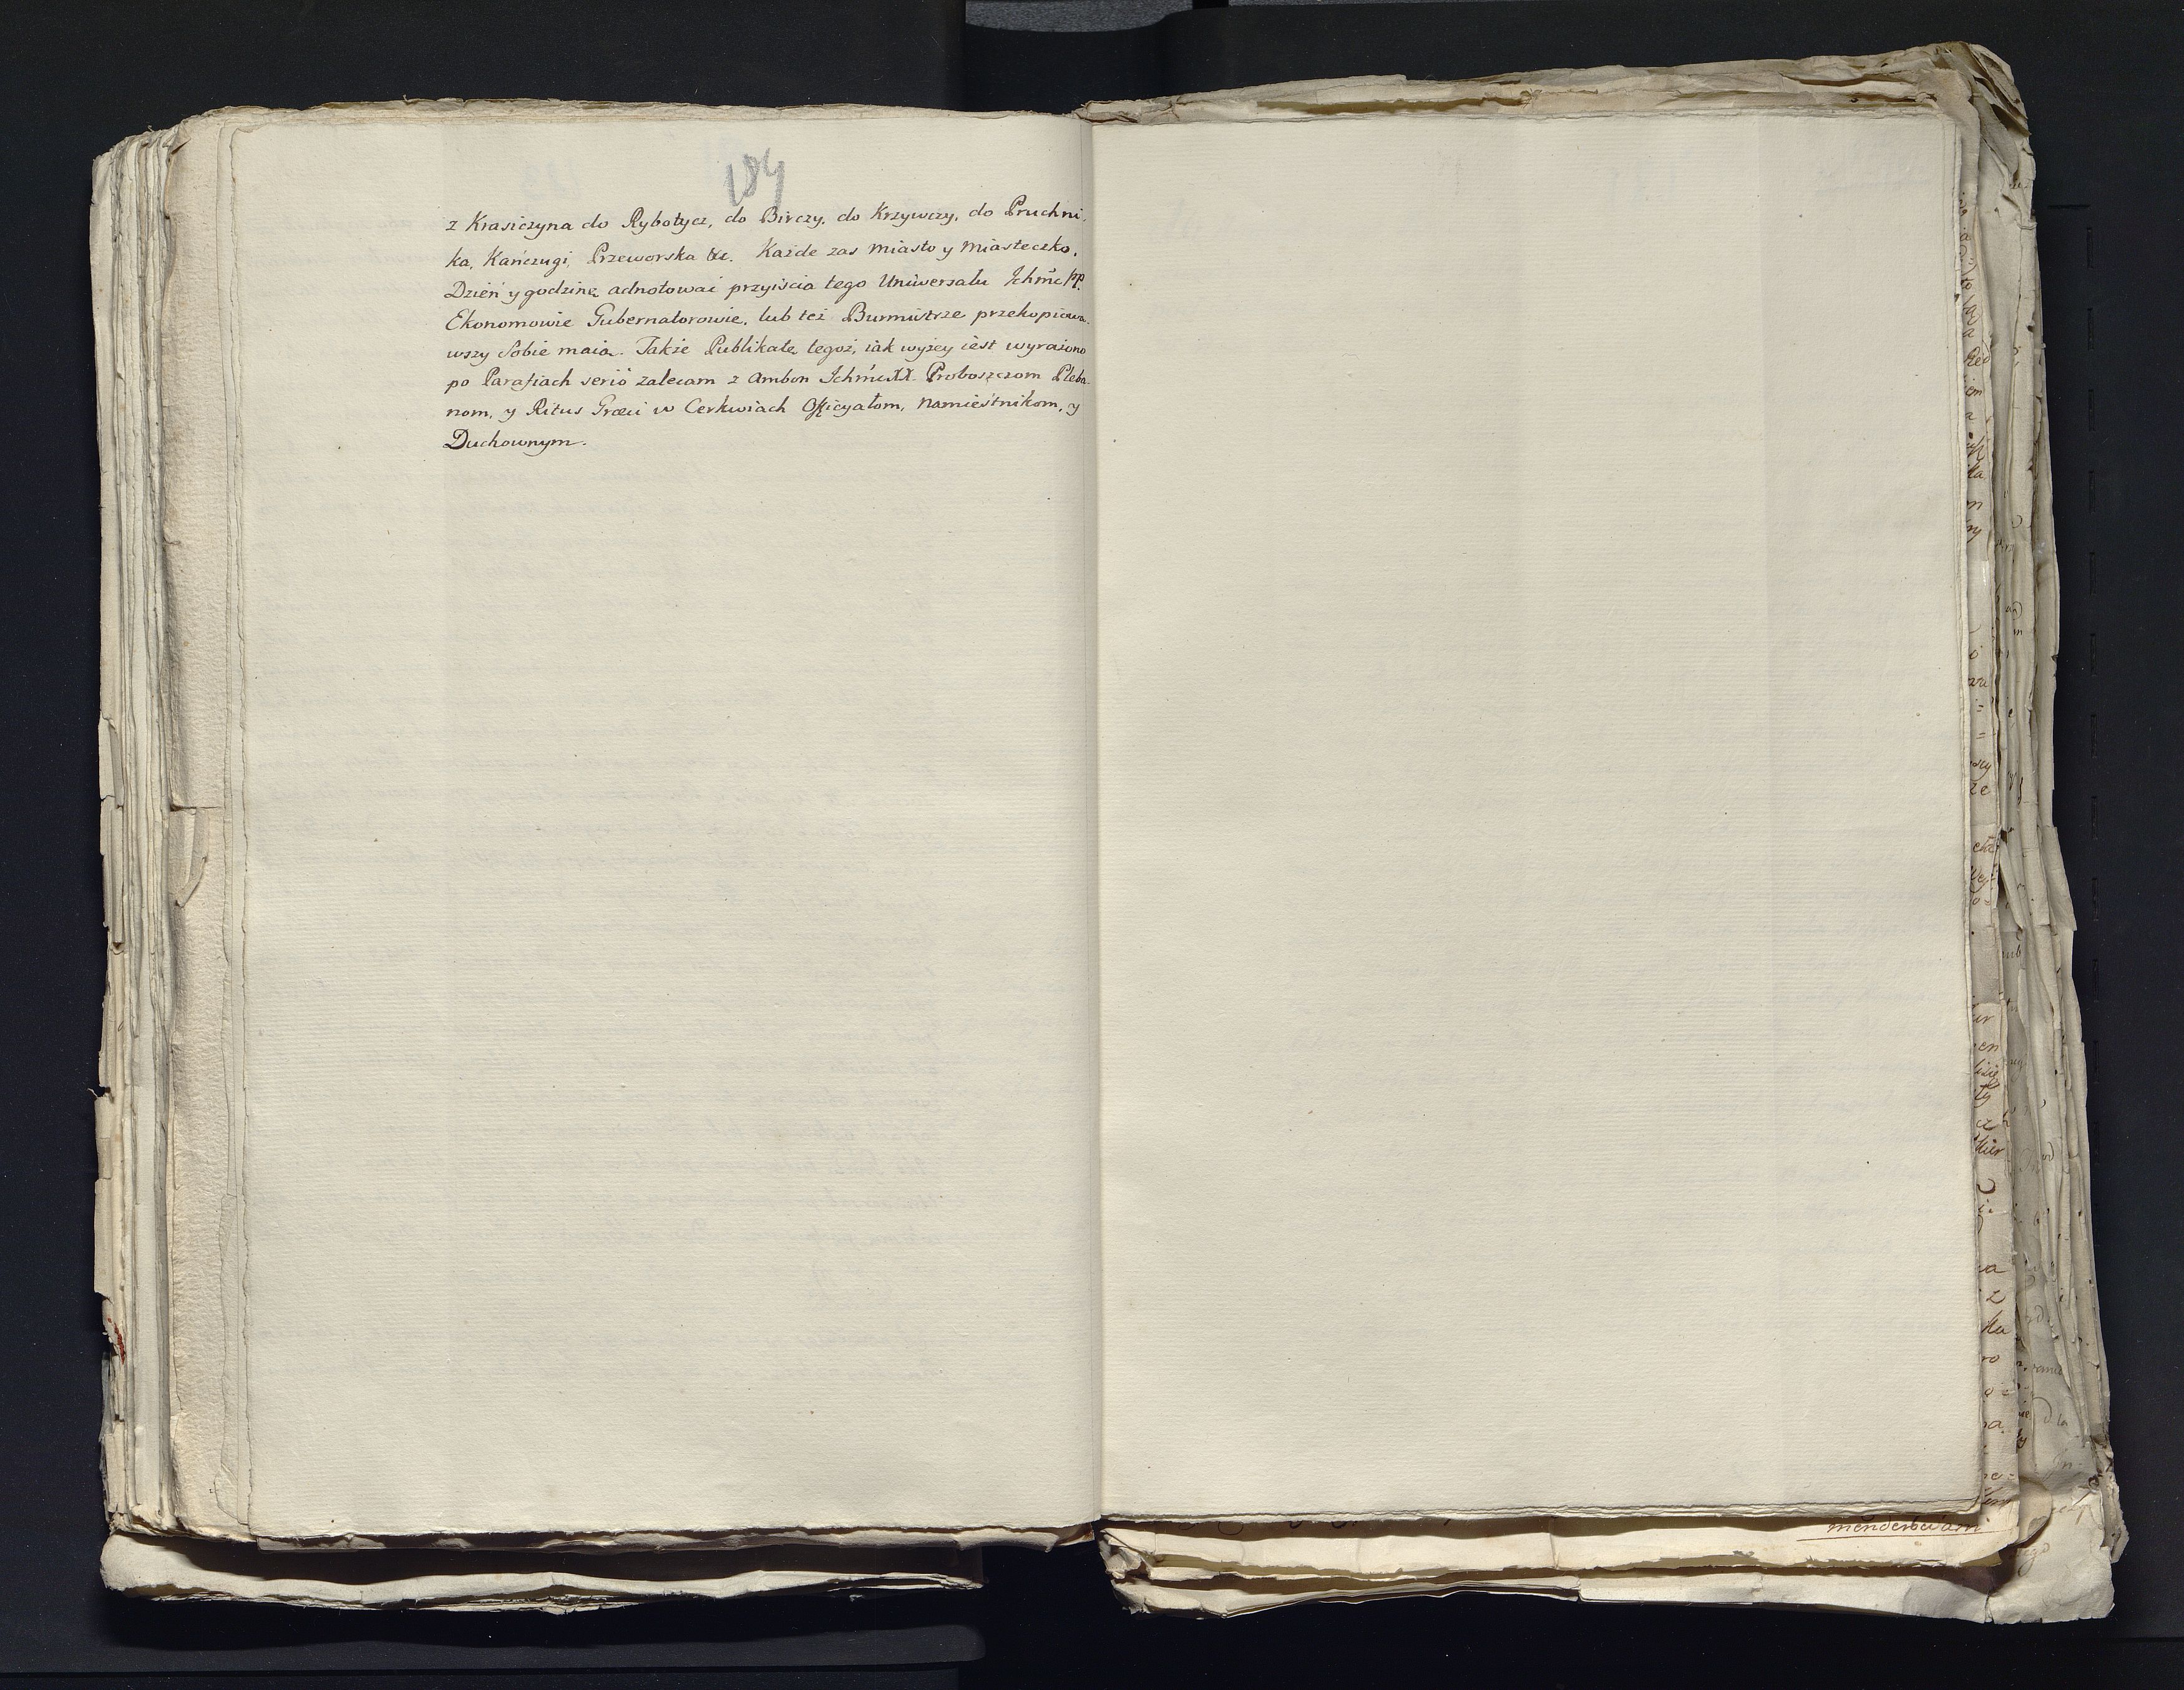 184
z Krasiczyna do Rybotycz, do Birczy, do Krzywczy, do Pruchni-
ka, Kańczugi, Przeworska &c. Każde zas Miasto y Miasteczko,
Dzień y godzinę adnotować przyiscia tego Uniwersału Ichmć PP.
Ekonomowie Gubernatorowie, lub też Burmistrze przekopiowa-
wszy Sobie maią. Także Publikatę tegoż, iak wyżey iest wyrażono
po Parafiach serió zalecam z Ambon IchmćXX. Proboszczom Pleba-
nom, y Ritus Græci w Cerkwiach Officyałom, Namiestnikom, y
Duchownym.